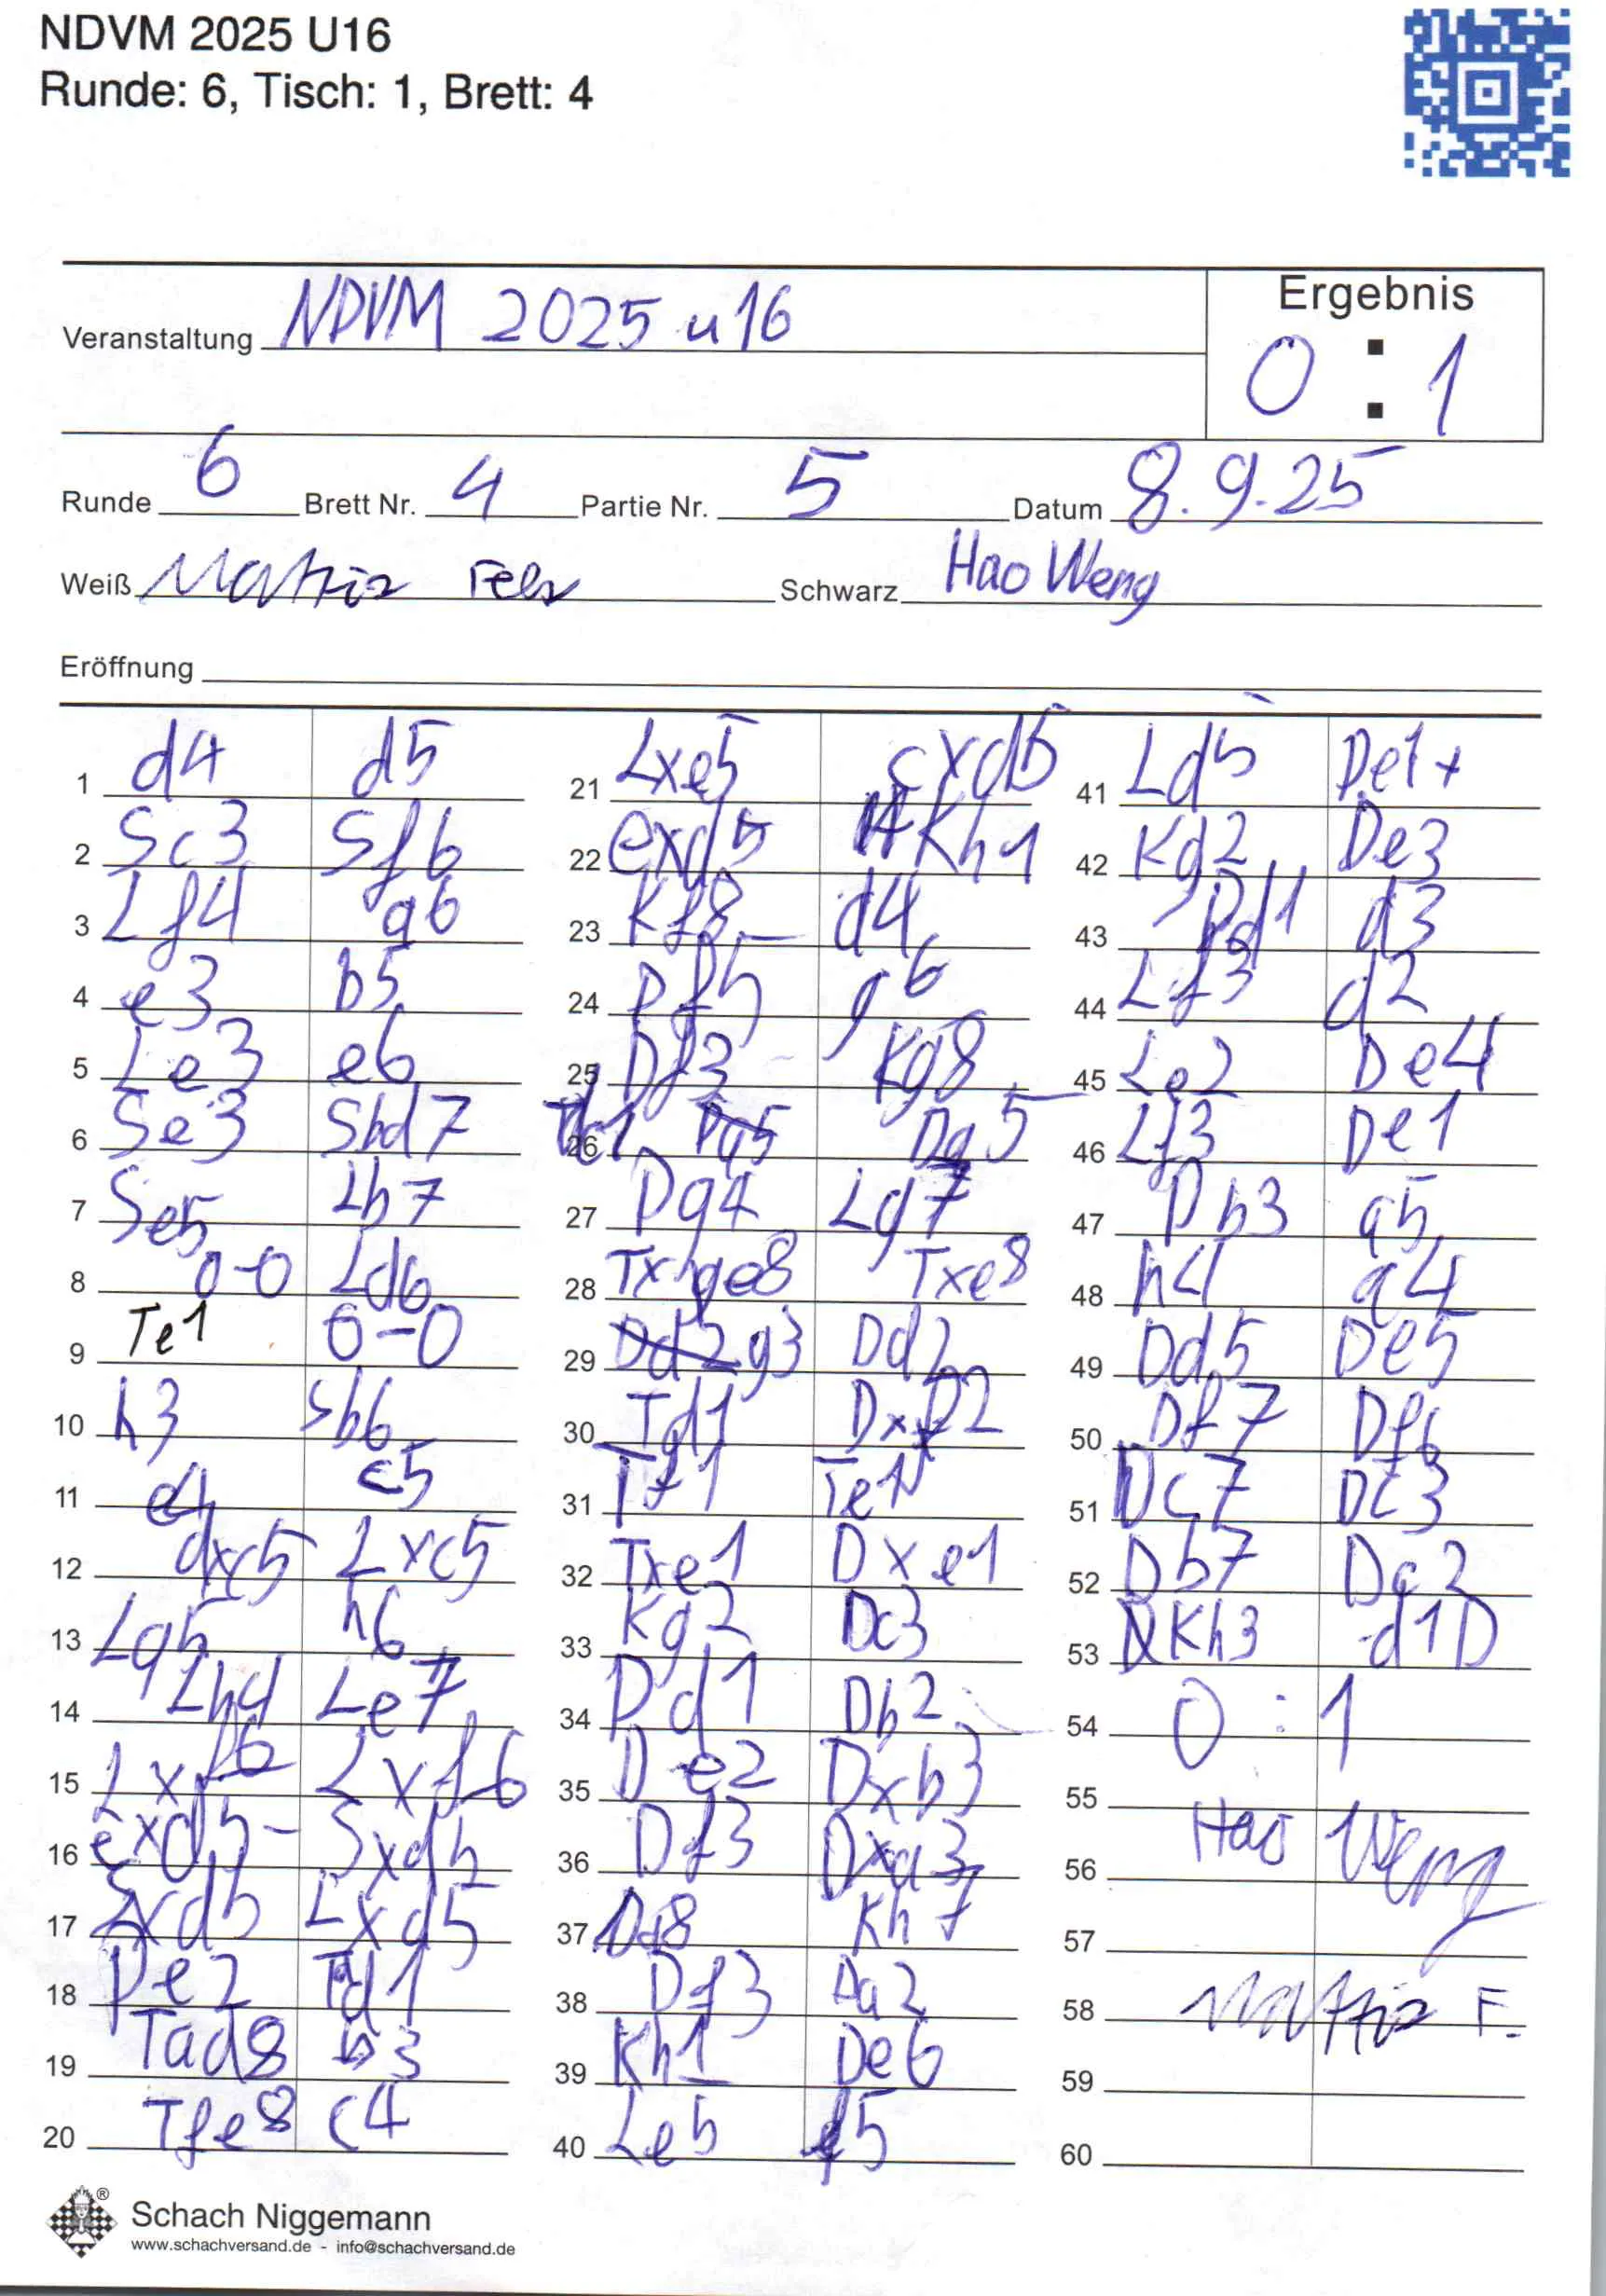 NDVM 2025 U16
Runde: 6, Tisch: 1, Brett: 4
Ergebnis
Veranstaltung NDVM 2025 u16
0 : 1
Runde 6 Brett Nr. 4 Partie Nr. 5 Datum 8.9.25
Weiß Schwarz Hao Weng
Eröffnung
1 d4 d5
2 Sc3 Sf6
3 Lf4 a6
4 e3 b5
5 Le3 e6
6 Se3 Sbd7
7 Se5 Lb7
8 0-0 Ld6
9 Te1 0-0
10 h3 Sb6
11 e4 c5
12 dxc5 Lxc5
13 Lg5 h6
14 Lh4 Le7
15 Lxf6 Lxf6
16 exd5 Sxd5
17 Sxd5 Lxd5
18 De2 Td1
19 Tad8 b3
20 Tfe8 c4
21 Lxe5 cxd5
22 exd5 Kh1
23 Kf8 d4
24 Df5 g6
25 Df3 Kg8
26 Da5
27 Dg4 Lg7
28 Txe8 Txe8
29 g3 Dd2
30 Td1 Dxf2
31 Tf1 Te1
32 Txe1 Dxe1
33 Kg2 Dc3
34 Dd1 Db2
35 De2 Dxb3
36 Df3 Dxa3
37 Da8 Kh7
38 Df3 Da2
39 Kh1 De6
40 Le5 f5
41 Ld5 De1+
42 Kg2 De3
43 Dd1 d3
44 Lf3 d2
45 Le2 De4
46 Lf3 De1
47 Db3 a5
48 h4 a4
49 Dd5 De5
50 Df7 Df6
51 Dc7 Dc3
52 Db7 Da3
53 Kh3 d1D
54 0 : 1
55
56 Hao Weng
57
58 F.
59
60
Schach Niggemann
www.schachversand.de - info@schachversand.de